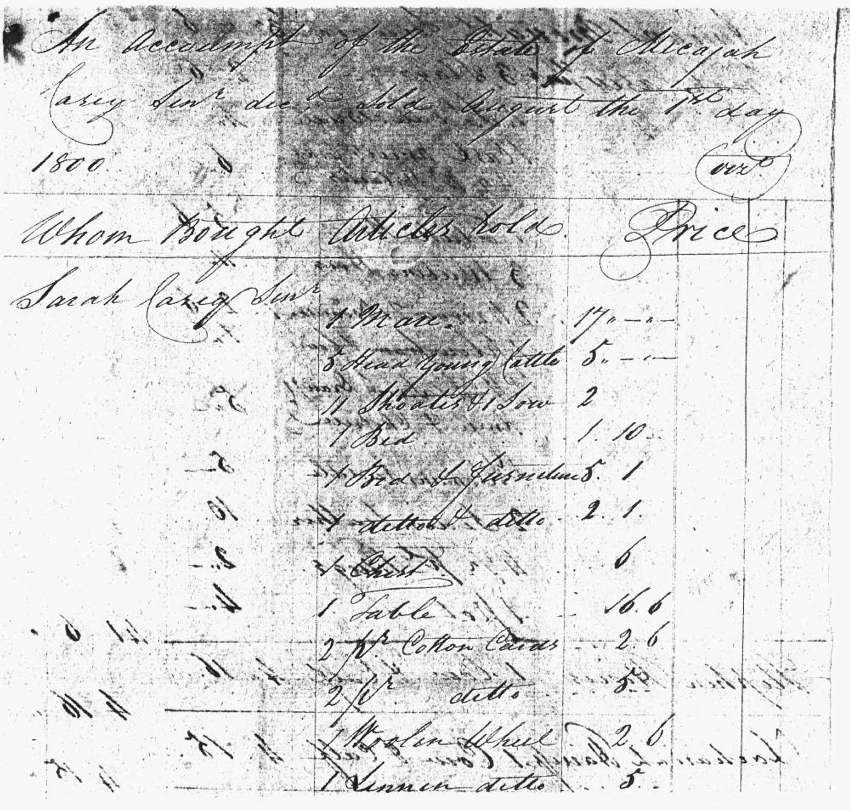 An Accoumpt of the Estate of Micajah
Casey Senr decd Sold August the 1st day
1800 vizt
Whom Bought Articles Sold Price
Sarah Casey Senr
1 Mare. 17 " — " —
5 Head Young Cattle 5 " — " —
11 Shoates & 1 Sow 2
1 Bed 1. 10
1 Bed & Furniture 5. 1
1 ditto & ditto 2. 1
1 Chest 6
1 Table 16. 6
2 pr Cotton Cards 2. 6
2 pr ditto 5
1 Woolen Wheel 2. 6
1 Linnen ditto 5.